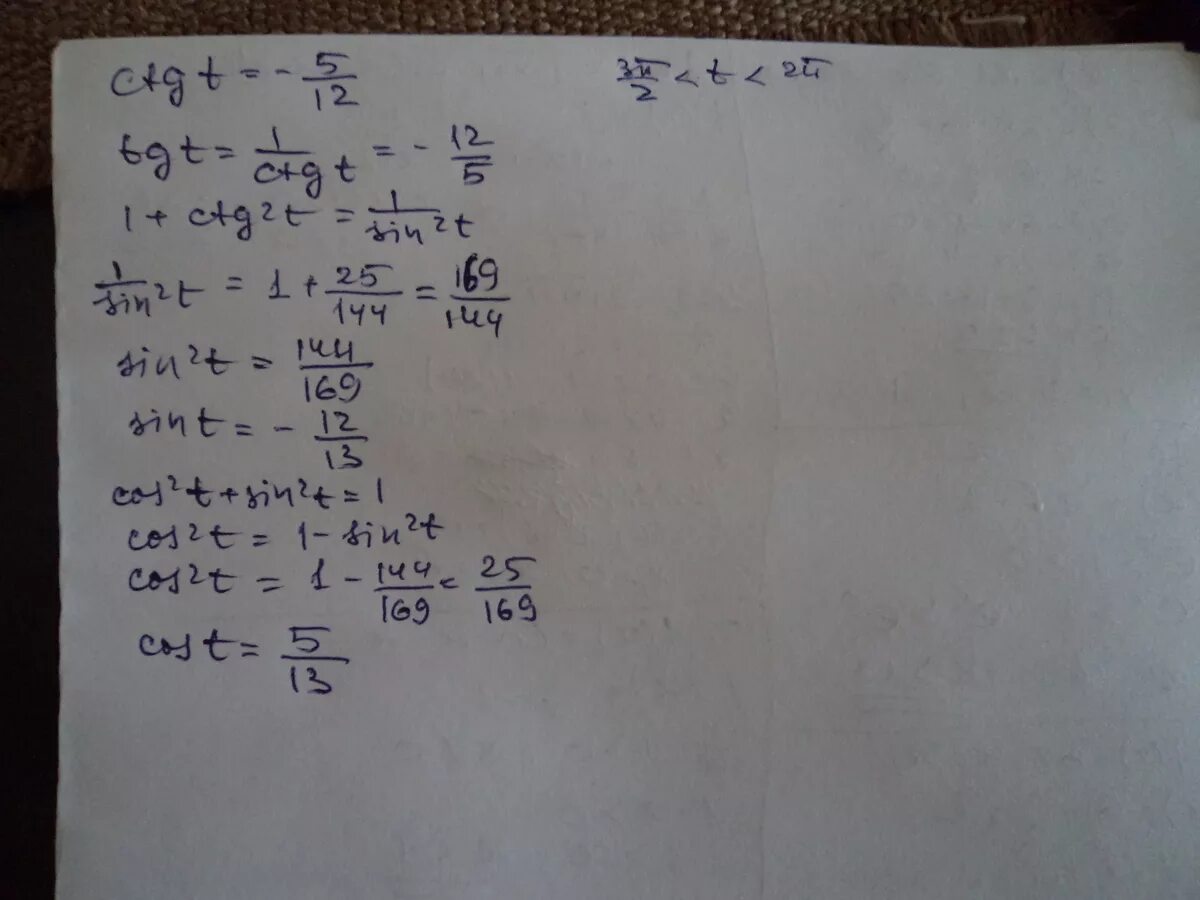 ctg t = - 5/12    3π/2 < t < 2π
tg t = 1/ctg t = - 12/5
1 + ctg²t = 1/sin²t
1/sin²t = 1 + 25/144 = 169/144
sin²t = 144/169
sin t = - 12/13
cos²t + sin²t = 1
cos²t = 1 - sin²t
cos²t = 1 - 144/169 = 25/169
cos t = 5/13